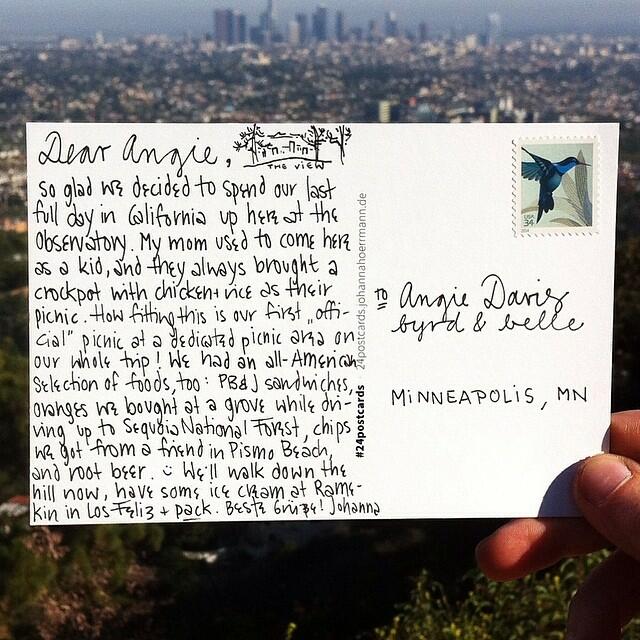 Dear Angie,
THE VIEW
so glad we decided to spend our last
full day in California up here at the
Observatory. My mom used to come here
as a kid, and they always brought a
crockpot with chicken + rice as their
picnic. How fitting this is our first „offi-
cial" picnic at a dedicated picnic area on
our whole trip! We had an all-American
selection of foods, too: PB&J sandwiches,
oranges we bought at a grove while dri-
ving up to Sequoia National Forest, chips
we got from a friend in Pismo Beach,
and root beer. :) We'll walk down the
hill now, have some ice cream at Rame-
kin in Los Feliz + pack. Beste Grüße! Johanna
#24postcards 24postcards.johannahoerrmann.de
USA
34
TO Angie Davis
byrd & belle
MINNEAPOLIS, MN